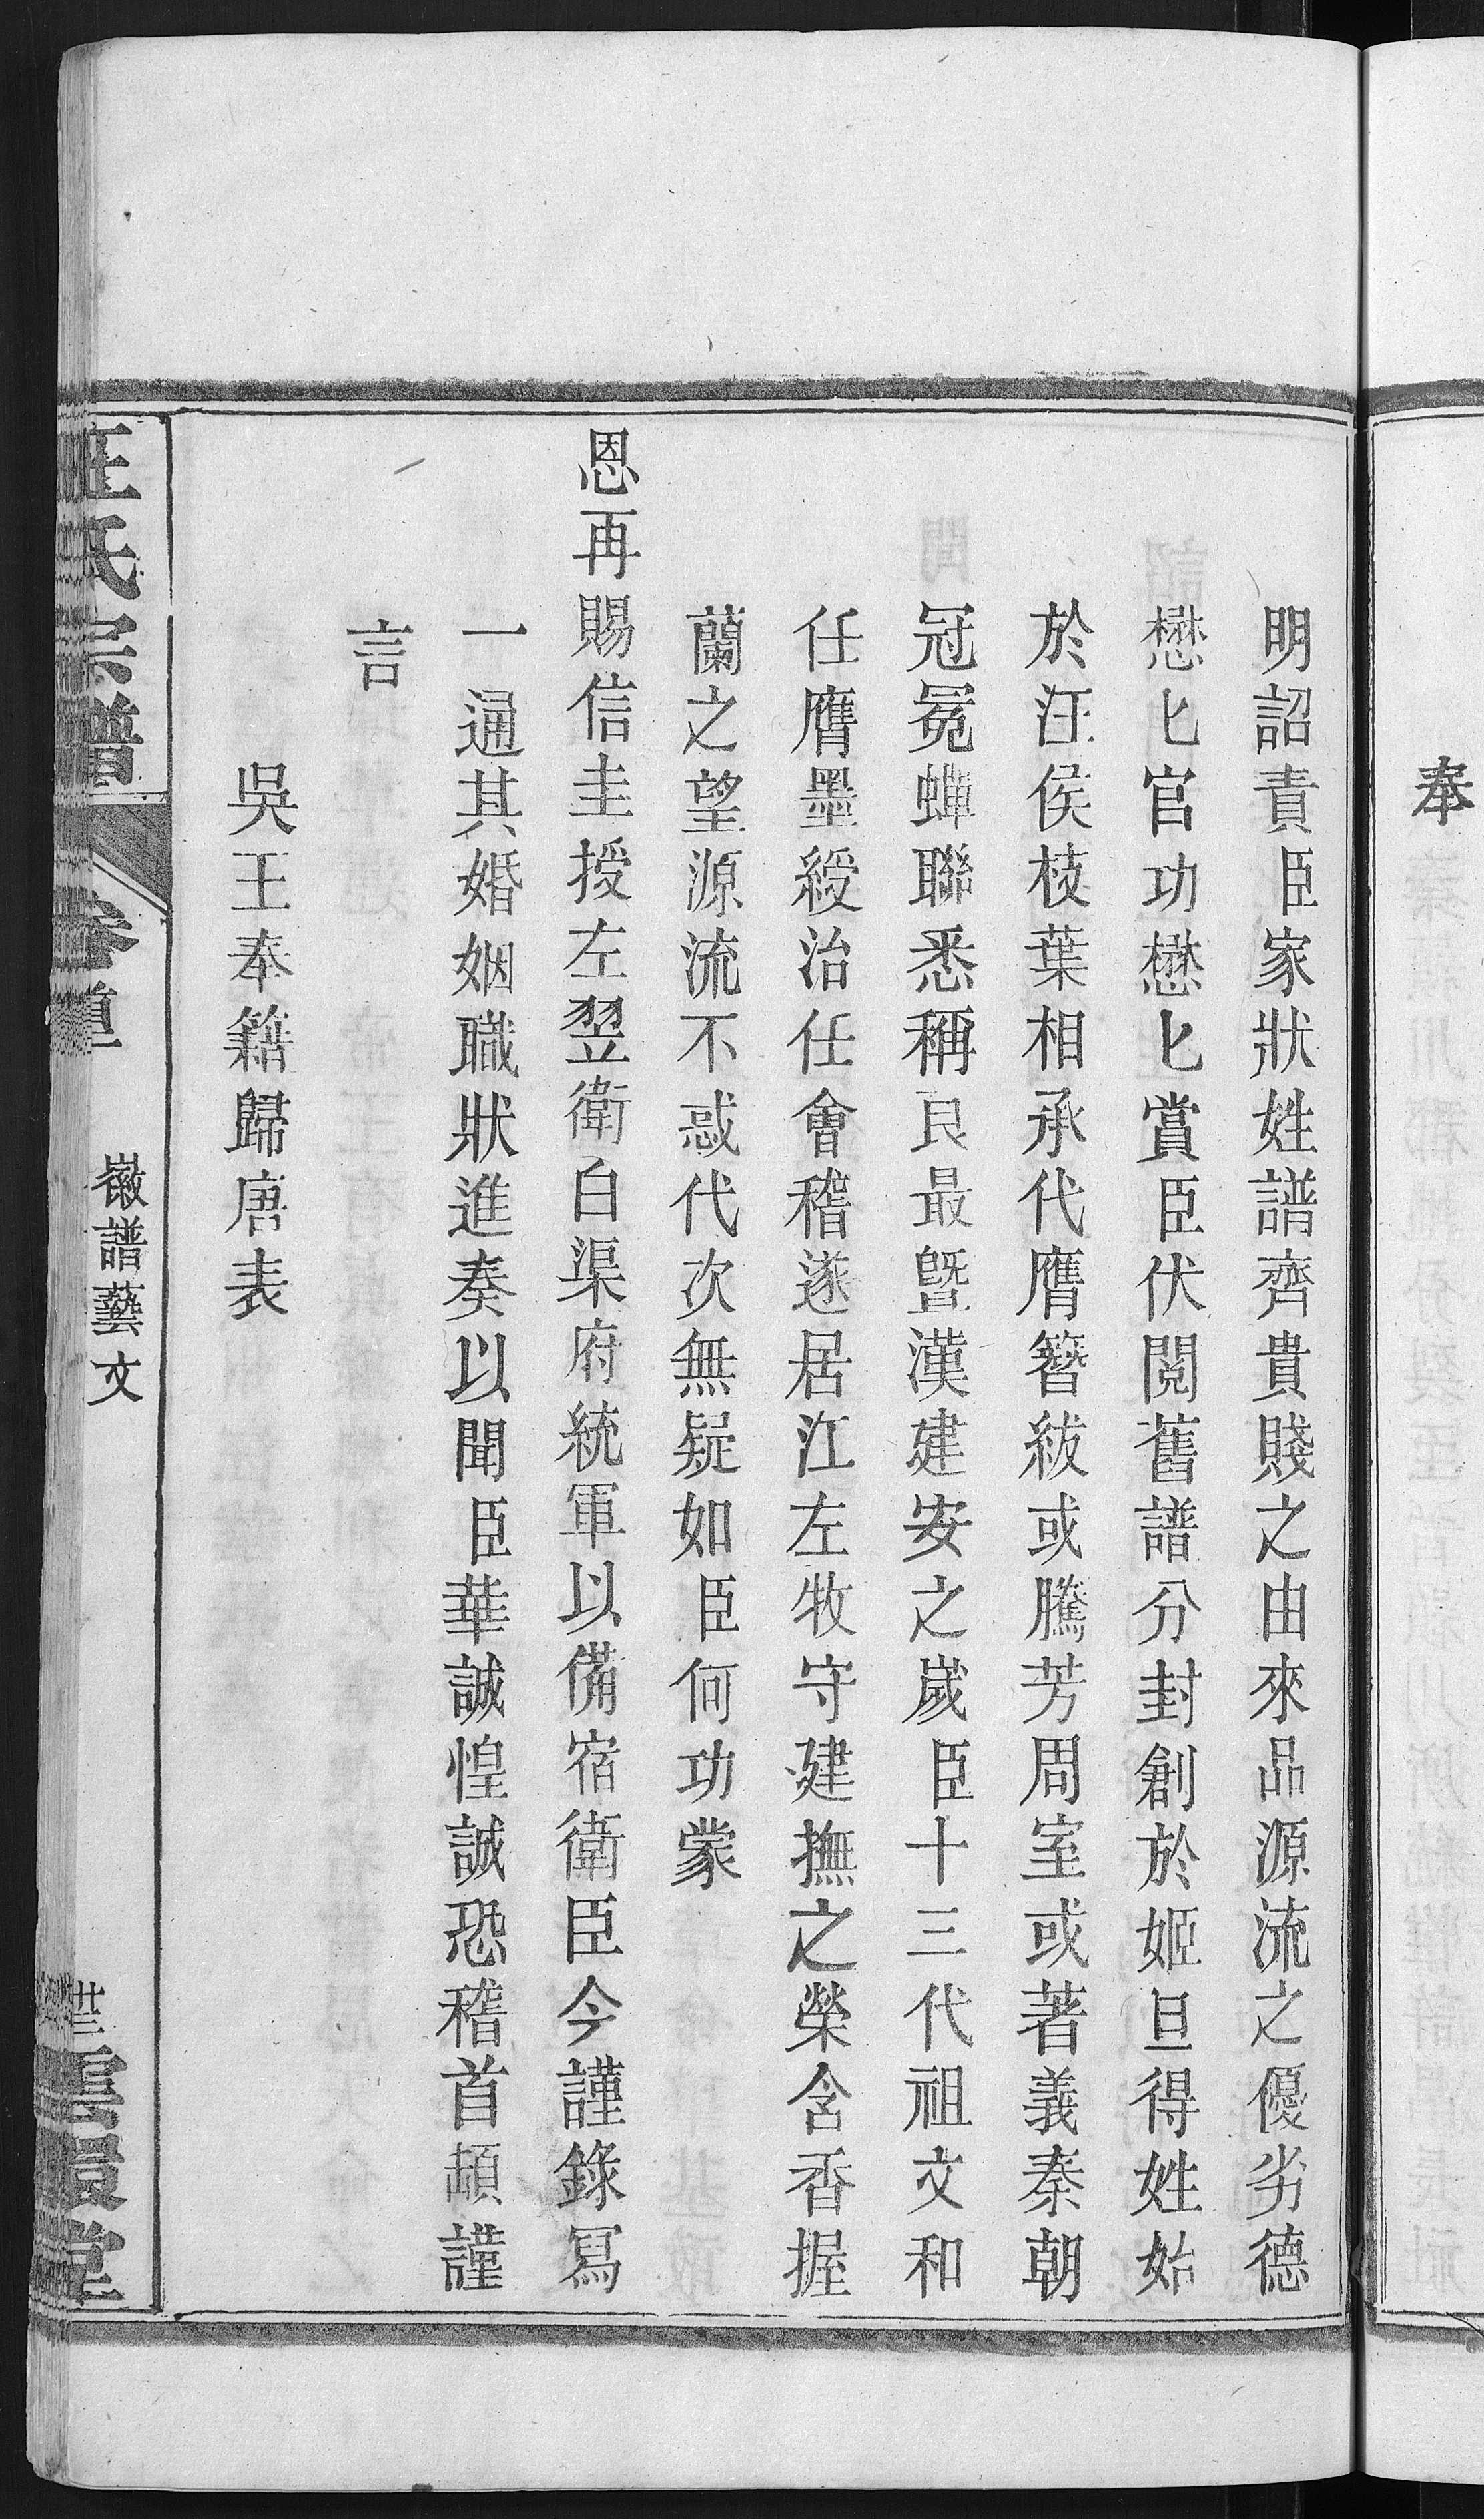 奉
明詔責臣家狀姓譜齊貴賤之由來品源流之優劣德
懋匕官功懋匕賞臣伏閱舊譜分封創於姬旦得姓始
於汪侯枝葉相承代膺簪紱或騰芳周室或著義秦朝
冠冕蟬聯悉稱良最曁漢建安之歲臣十三代祖文和
任膺墨綬治任會稽遂居江左牧守建撫之榮含香握
蘭之望源流不惑代次無疑如臣何功蒙
恩再賜信圭授左翌衛白渠府統軍以備宿衛臣今謹錄冩
一通其婚姻職狀進奏以聞臣華誠惶誠恐稽首頓謹
言
吳王奉籍歸唐表
汪氏宗譜
卷首
徽譜藝文
卅三
雲環堂